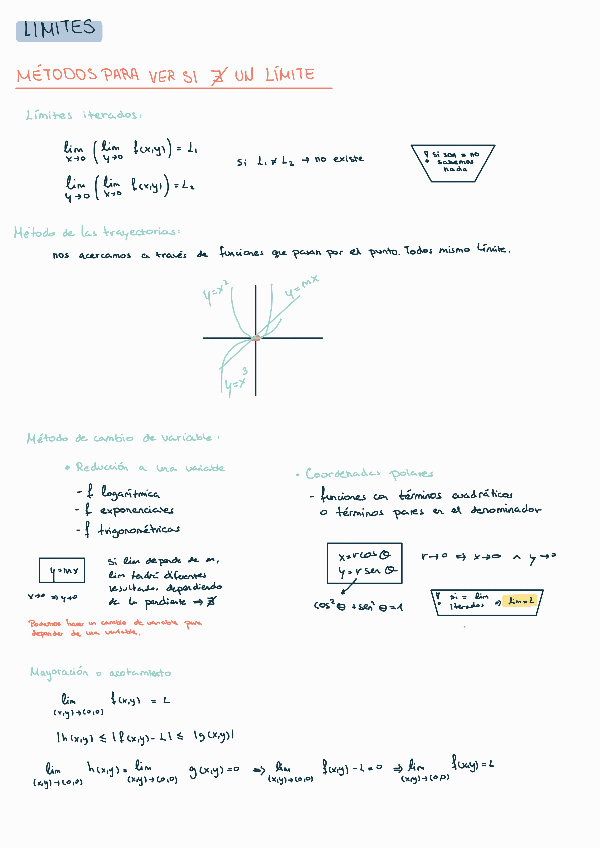 LIMITES
MÉTODOS PARA VER SI ∄ UN LÍMITE
Límites iterados:
lim x→0 (lim y→0 f(x,y)) = L₁
si L₁ ≠ L₂ → no existe
! si son = no
sabemos
nada
lim y→0 (lim x→0 f(x,y)) = L₂
Método de las trayectorias:
nos acercamos a través de funciones que pasan por el punto. Todos mismo límite.
y=x²
y=mx
y=x³
Método de cambio de variable:
• Reducción a una variable
- f logarítmica
- f exponenciales
- f trigonométricas
y=mx
x→0 ⇒ y→0
Si lim depende de m,
lim tendrá diferentes
resultados, dependiendo
de la pendiente ⇒ ∄
Podemos hacer un cambio de variable para
depender de una variable.
• Coordenadas polares
- funciones con términos cuadráticos
o términos pares en el denominador
x=r cos θ
y=r sen θ
r→0 ⇒ x→0 ∧ y→0
cos²θ + sen²θ = 1
! si = lim
iterados ⇒ lim = L
Mayoración o acotamiento
lim (x,y)→(0,0) f(x,y) = L
|h(x,y)| ≤ |f(x,y) - L| ≤ |g(x,y)|
lim (x,y)→(0,0) h(x,y) = lim (x,y)→(0,0) g(x,y) = 0 ⇒ lim (x,y)→(0,0) f(x,y) - L = 0 ⇒ lim (x,y)→(0,0) f(x,y) = L